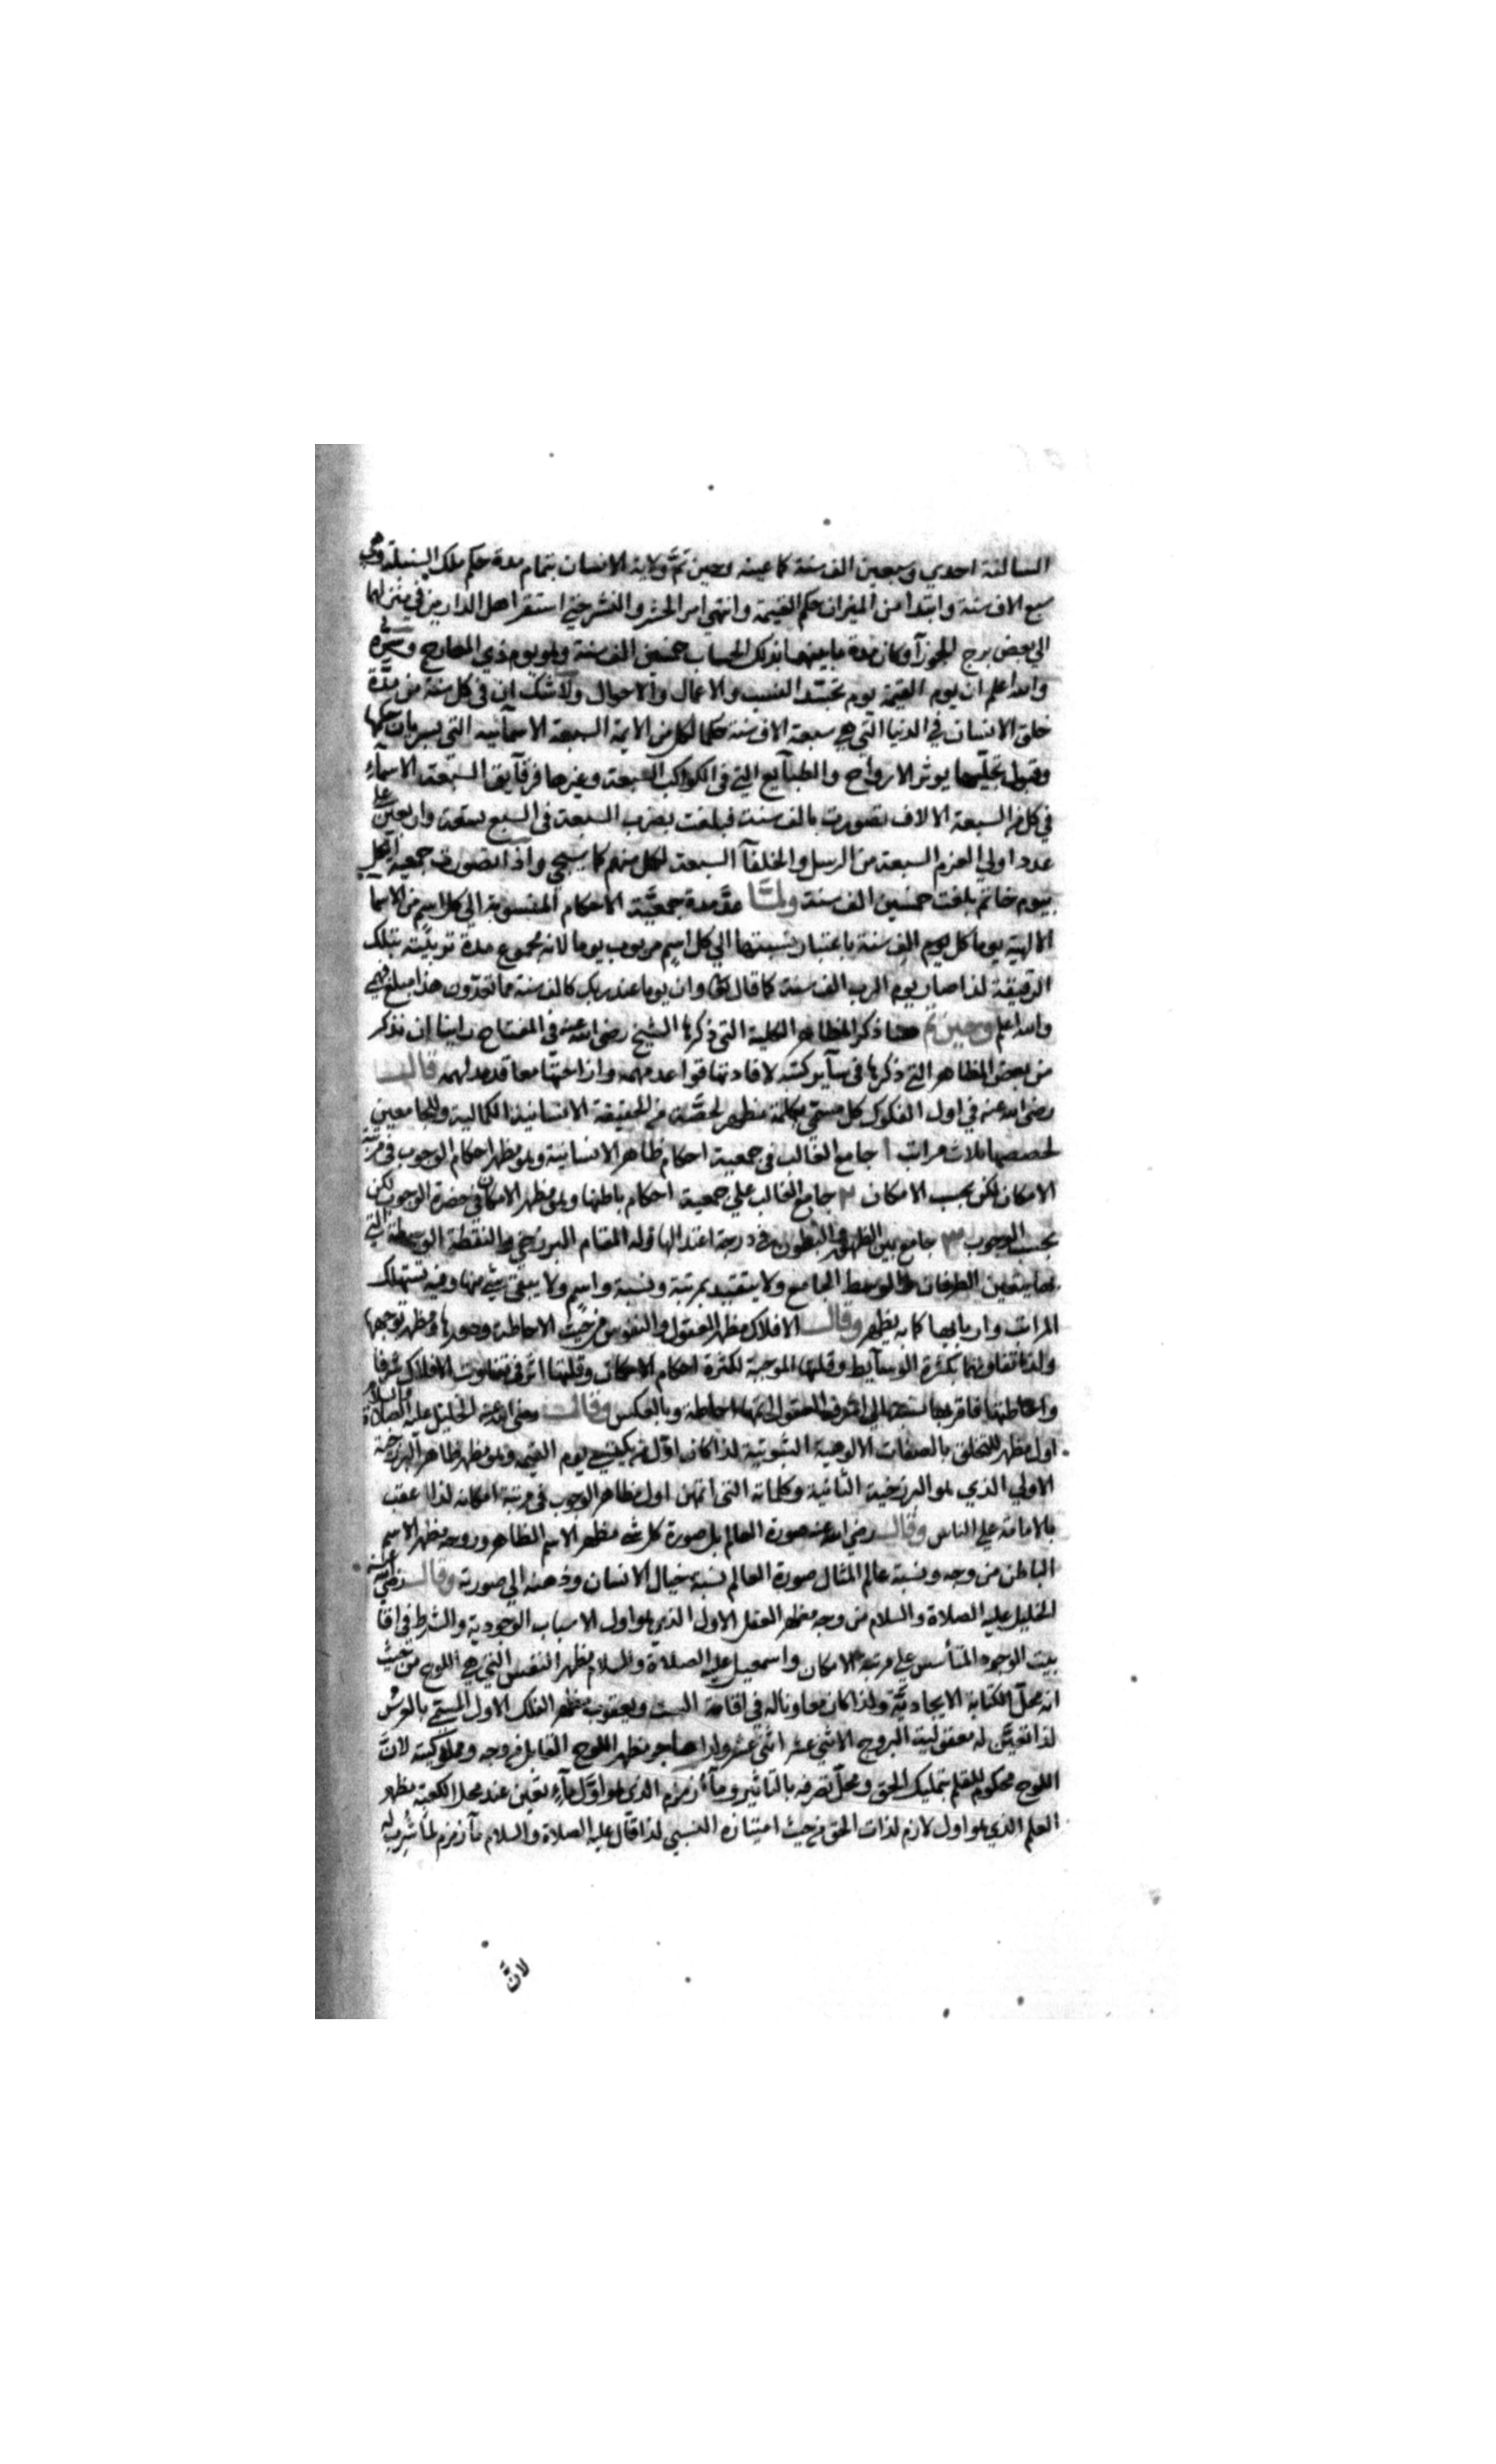 السالفة احدي وسبعين الف سنة كما عينه وحين تمَّ ولاية الانسان بتمام مدة حكم ملك السنبلة وهي
سبع الاف سنة وابتدا من الميزان حكم القيمة وانتهي امر الحشر والنشر حتي استقر اهل الدارين في منزلهما
الي بعض برج الجوزآ وكان مدة ما بينهما بذلك الحساب خمسين الف سنة وهو يوم ذي المعارج
والله اعلم ان يوم القيمة يوم تجسّد النسب والاعمال والاحوال ولا شك ان في كل سنة من مدّة
خلق الانسان في الدنيا التي هي سبعة الاف سنة حكما لكل من الايمة السبعة الاسمآئية التي بسريان حكمها
وقبول تجليهما يوثر الارواح والطبآيع التي في الكواكب السبعة وغيرها فرقآيق السبعة الاسمآء
في كل من السبعة الالاف تصورت بالف سنة فبلغت بضرب السبعة في السبع تسعة واربعين علي
عدد اولي العزم السبعة من الرسل والخلفآ السبعة لكل منهم كما سيجي واذا تصورت جمعية الكل
بيوم خاتم بلغت خمسين الف سنة ولمّا عدّ مدة جمعيَّة الاحكام المنسوبة الي كل اسم من الاسما
الالهية يوما كل يوم الف سنة باعتبار نسبتها الي كل اسم مربوب يوما لانه مجموع مدة تربيته بتلك
الرقيقة لذا صار يوم الرب الف سنة كما قال تع وان يوما عند ربك كالف سنة مما تعدّون هذا مبلغ فهمي
والله اعلم وحين تم هنا ذكر المظاهر الكلية التي ذكرها الشيخ رضي الله عنه في المفتاح راينا ان نذكر
من بعض المظاهر التي ذكرها في سآير كتبه لافادتها قواعد مهمة وازاحتها معاقد مدلهمه قالــــ
رضي الله عنه في اول الفكوك كل مسمّي بكلمة مظهر لحصَّة من الحقيقة الانسانية الكمالية وللجامعين
لحصصها ثلاث مراتب ا جامع الغالب في جمعية احكام ظاهر الانسانية وهو مظهر احكام الوجوب في مرتبة
الامكان لكن بحسب الامكان ٢ جامع الغالب علي جمعية احكام باطنها وهو مظهر الامكان في حضرة الوجوب لكن
بحسب الوجوب ٣ جامع بين الظهور والبطون في درجة اعتدالها وله المقام البرزخي والنقطة الوسطية التي
بها يتعين الطرفان والوسط الجامع ولا يتقيد بمرتبة ونسبة واسم ولا يبقي شي منها وفيه تستهلك
المراتب واربابها كما به يظهر وقالــــ الافلاك مظهر العقول والنفوس من حيث الاحاطة وصورها ومظهر توجهها
ولذا تفاوتها بكثرة الوسآيط وقلتها الموجبة لكثرة احكام الامكان وقلتها اثر في تفاوت الافلاك شرفا
واحاطتها فاقربها نسبة الي اشرف العقول اتمها احاطة وبالعكس وقالــــ رضي الله عنه الخليل عليه الصلاة والسلام
اول مظهر للتخلق بالصفات الالوهية الثبوتية لذا كان اوّل من يكسي يوم القيمه وهو مظهر ظاهر البرزخية
الاولي الذي هو البرزخية الثانية وكلماته التي اتمهن اول مظاهر الوجوب في مرتبة امكانه لذا عقب
بالامامة علي الناس وقالــــ رضي الله عنه صورة العالم بل صورة كل شي مظهر الاسم الظاهر وروحه مظهر الاسم
الباطن من وجه ونسبة عالم المثال صورة العالم نسبة خيال الانسان وذهنه الي صورته وقالــــ رضي الله عنه
الخليل عليه الصلاة والسلام من وجه مظهر العقل الاول الذي هو اول الاسباب الوجودية والشرط في اقا
بيت الوجود المتأسس علي مرتبة الامكان واسمعيل عليه الصلاة والسلام مظهر النفس التي هي اللوح من حيث
انه محلّ الكتابة الايجاديَّة ولذا كان معاونا له في اقامة البيت ويعقوب مظهر الفلك الاول المسمّي بالعرش
لذا تعيَّن له معقولية البروج الاثني عشر اثني عشر ولدا هاجر مظهر اللوح القابل من وجه ومملوكيته لانَّ
اللوح محكوم للقلم بتمليك الحق ومحلّ تصرفه بالتاثير ومآء زمزم الذي هو اوَّل مآء تعيّن عند محل الكعبة مظهر
العلم الذي هو اول لازم لذات الحق من حيث امتيازه النسبي لذا قال عليه الصلاة والسلام مآ زمزم لما شُرِب له
لانّ